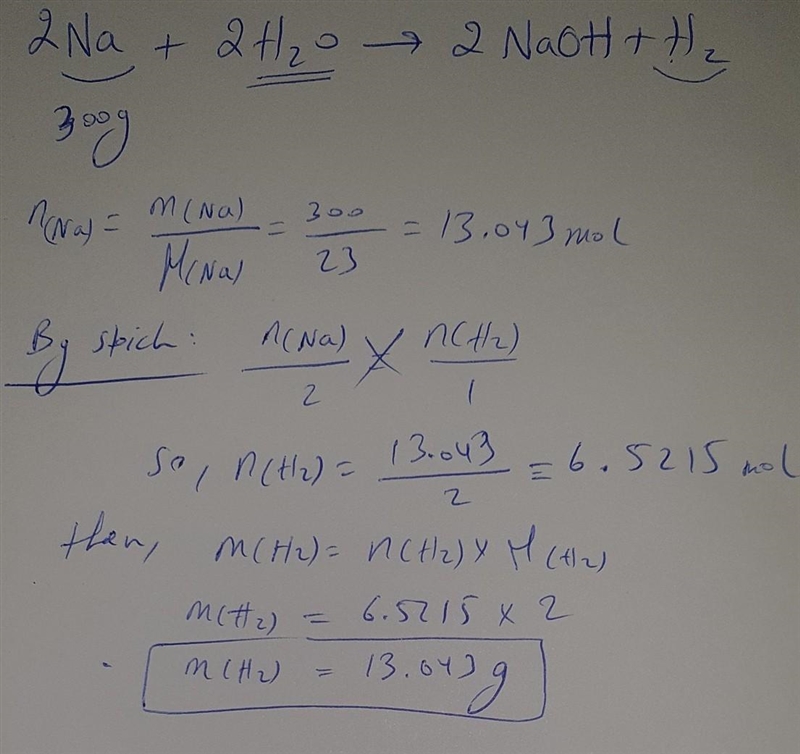 2Na + 2H₂O → 2 NaOH + H₂
300g
n(Na) = m(Na)/M(Na) = 300/23 = 13.043 mol
By stoich: n(Na)/2 = n(H₂)/1
So, n(H₂) = 13.043/2 = 6.5215 mol
then, m(H₂) = n(H₂) × M(H₂)
m(H₂) = 6.5215 × 2
m(H₂) = 13.043 g